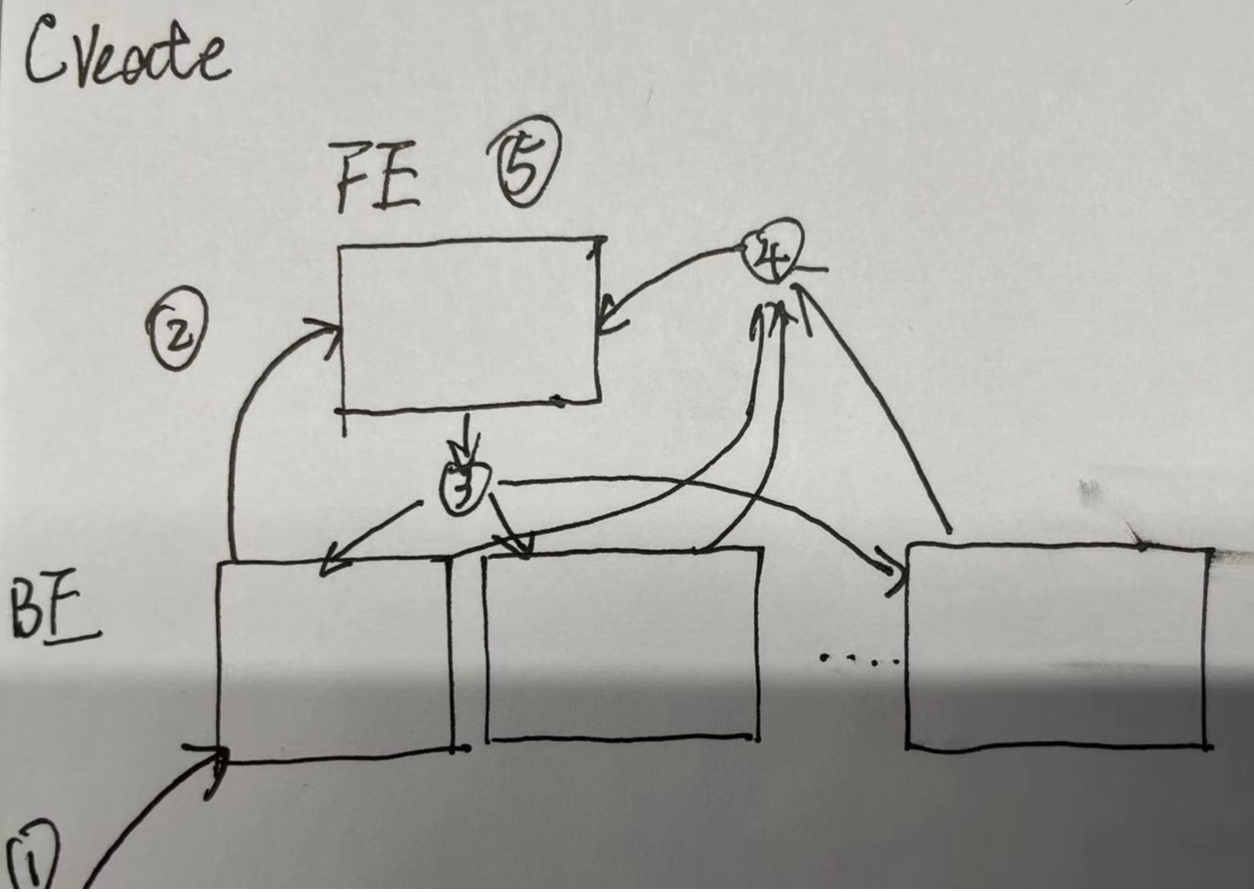 Create
FE ⑤
④
②
③
BE
.....
①